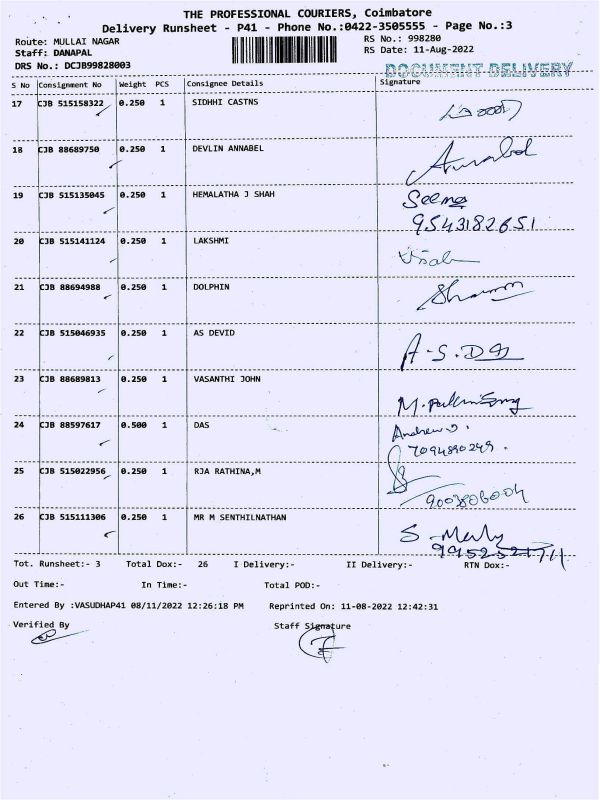 THE PROFESSIONAL COURIERS, Coimbatore
Delivery Runsheet - P41 - Phone No.:0422-3505555 - Page No.:3
Route: MULLAI NAGAR
RS No.: 998280
Staff: DANAPAL
RS Date: 11-Aug-2022
DRS No.: DCJB99828003
DOCUMENT DELIVERY
S No Consignment No Weight PCS Consignee Details Signature
17 CJB 515158322 0.250 1 SIDHHI CASTNS
18 CJB 88689750 0.250 1 DEVLIN ANNABEL Annabel
19 CJB 515135045 0.250 1 HEMALATHA J SHAH Seema
9543182651
20 CJB 515141124 0.250 1 LAKSHMI
21 CJB 88694988 0.250 1 DOLPHIN
22 CJB 515046935 0.250 1 AS DEVID A-S.D
23 CJB 88689813 0.250 1 VASANTHI JOHN
24 CJB 88597617 0.500 1 DAS Andrew
7094890249.
25 CJB 515022956 0.250 1 RJA RATHINA,M
9003806004
26 CJB 515111306 0.250 1 MR M SENTHILNATHAN
Tot. Runsheet:- 3 Total Dox:- 26 I Delivery:- II Delivery:- RTN Dox:-
Out Time:- In Time:- Total POD:-
Entered By :VASUDHAP41 08/11/2022 12:26:18 PM Reprinted On: 11-08-2022 12:42:31
Verified By Staff Signature